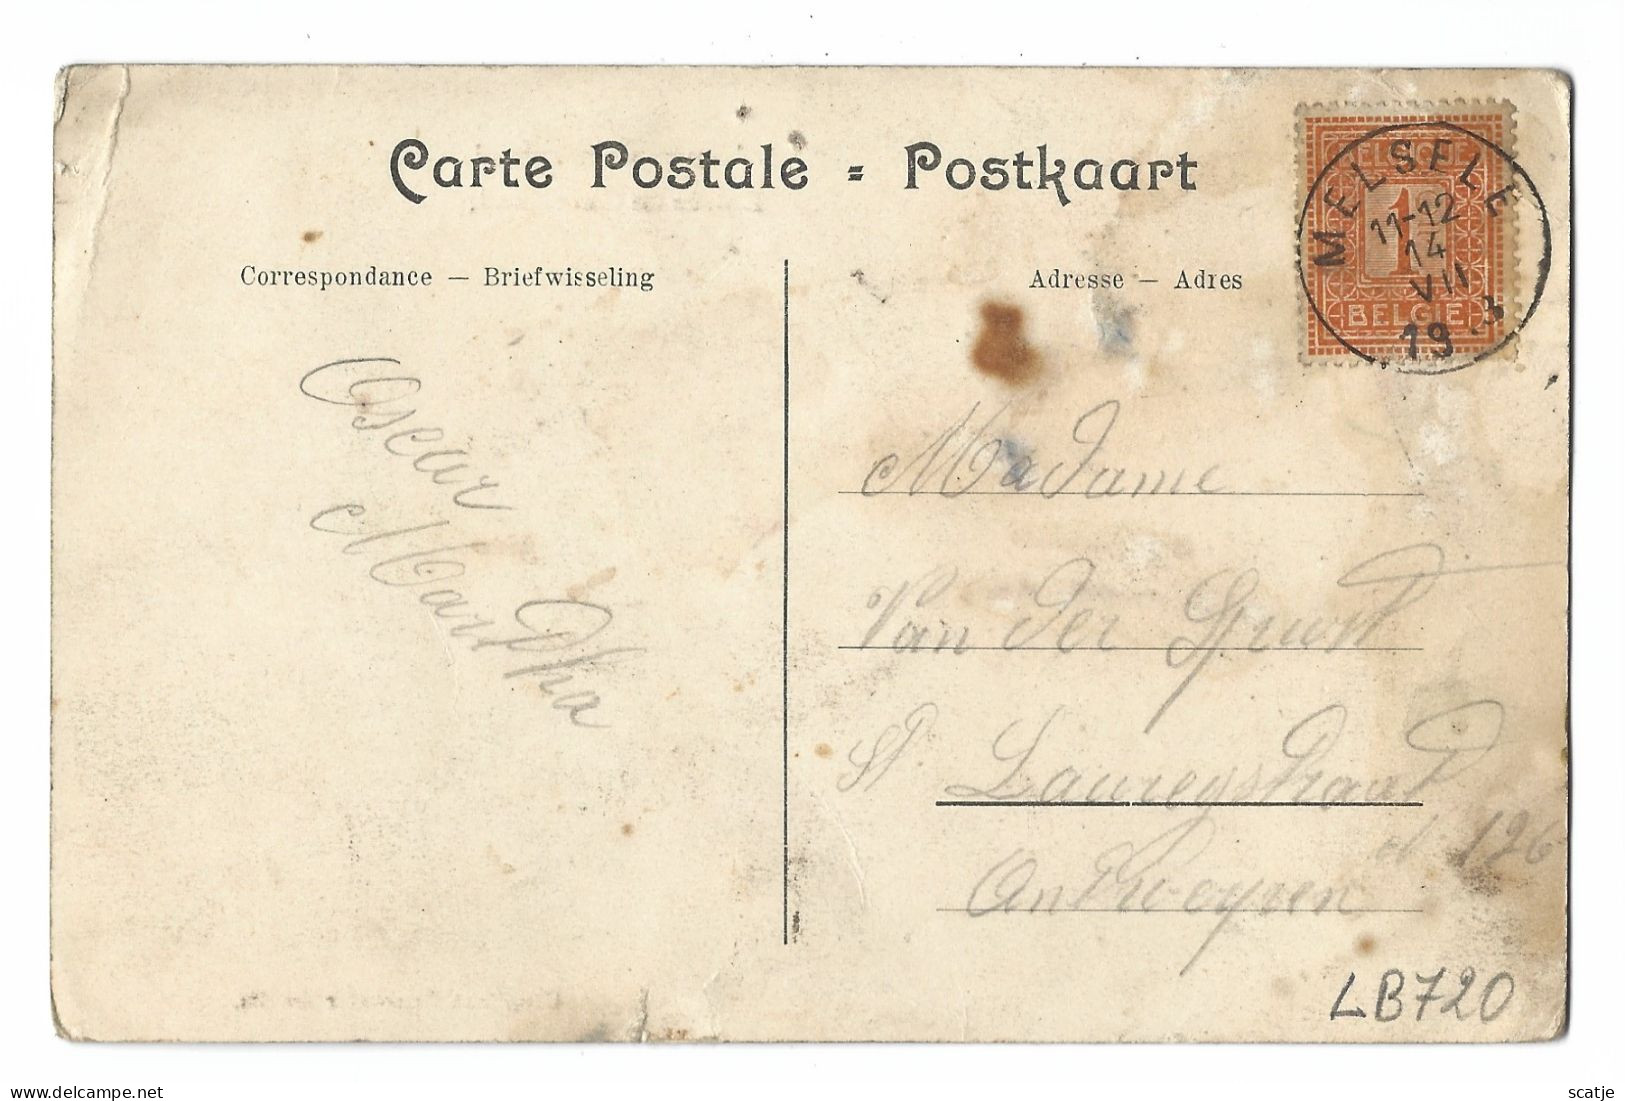 Carte Postale = Postkaart
Correspondance — Briefwisseling
Adresse — Adres
BELGIQUE
1
BELGIË
MELSELE
11-12
14
VII
19 3
Oscar
Martha
Madame
Van der
St. Laureystraat
N. 126
Antwerpen
LB720
scatje